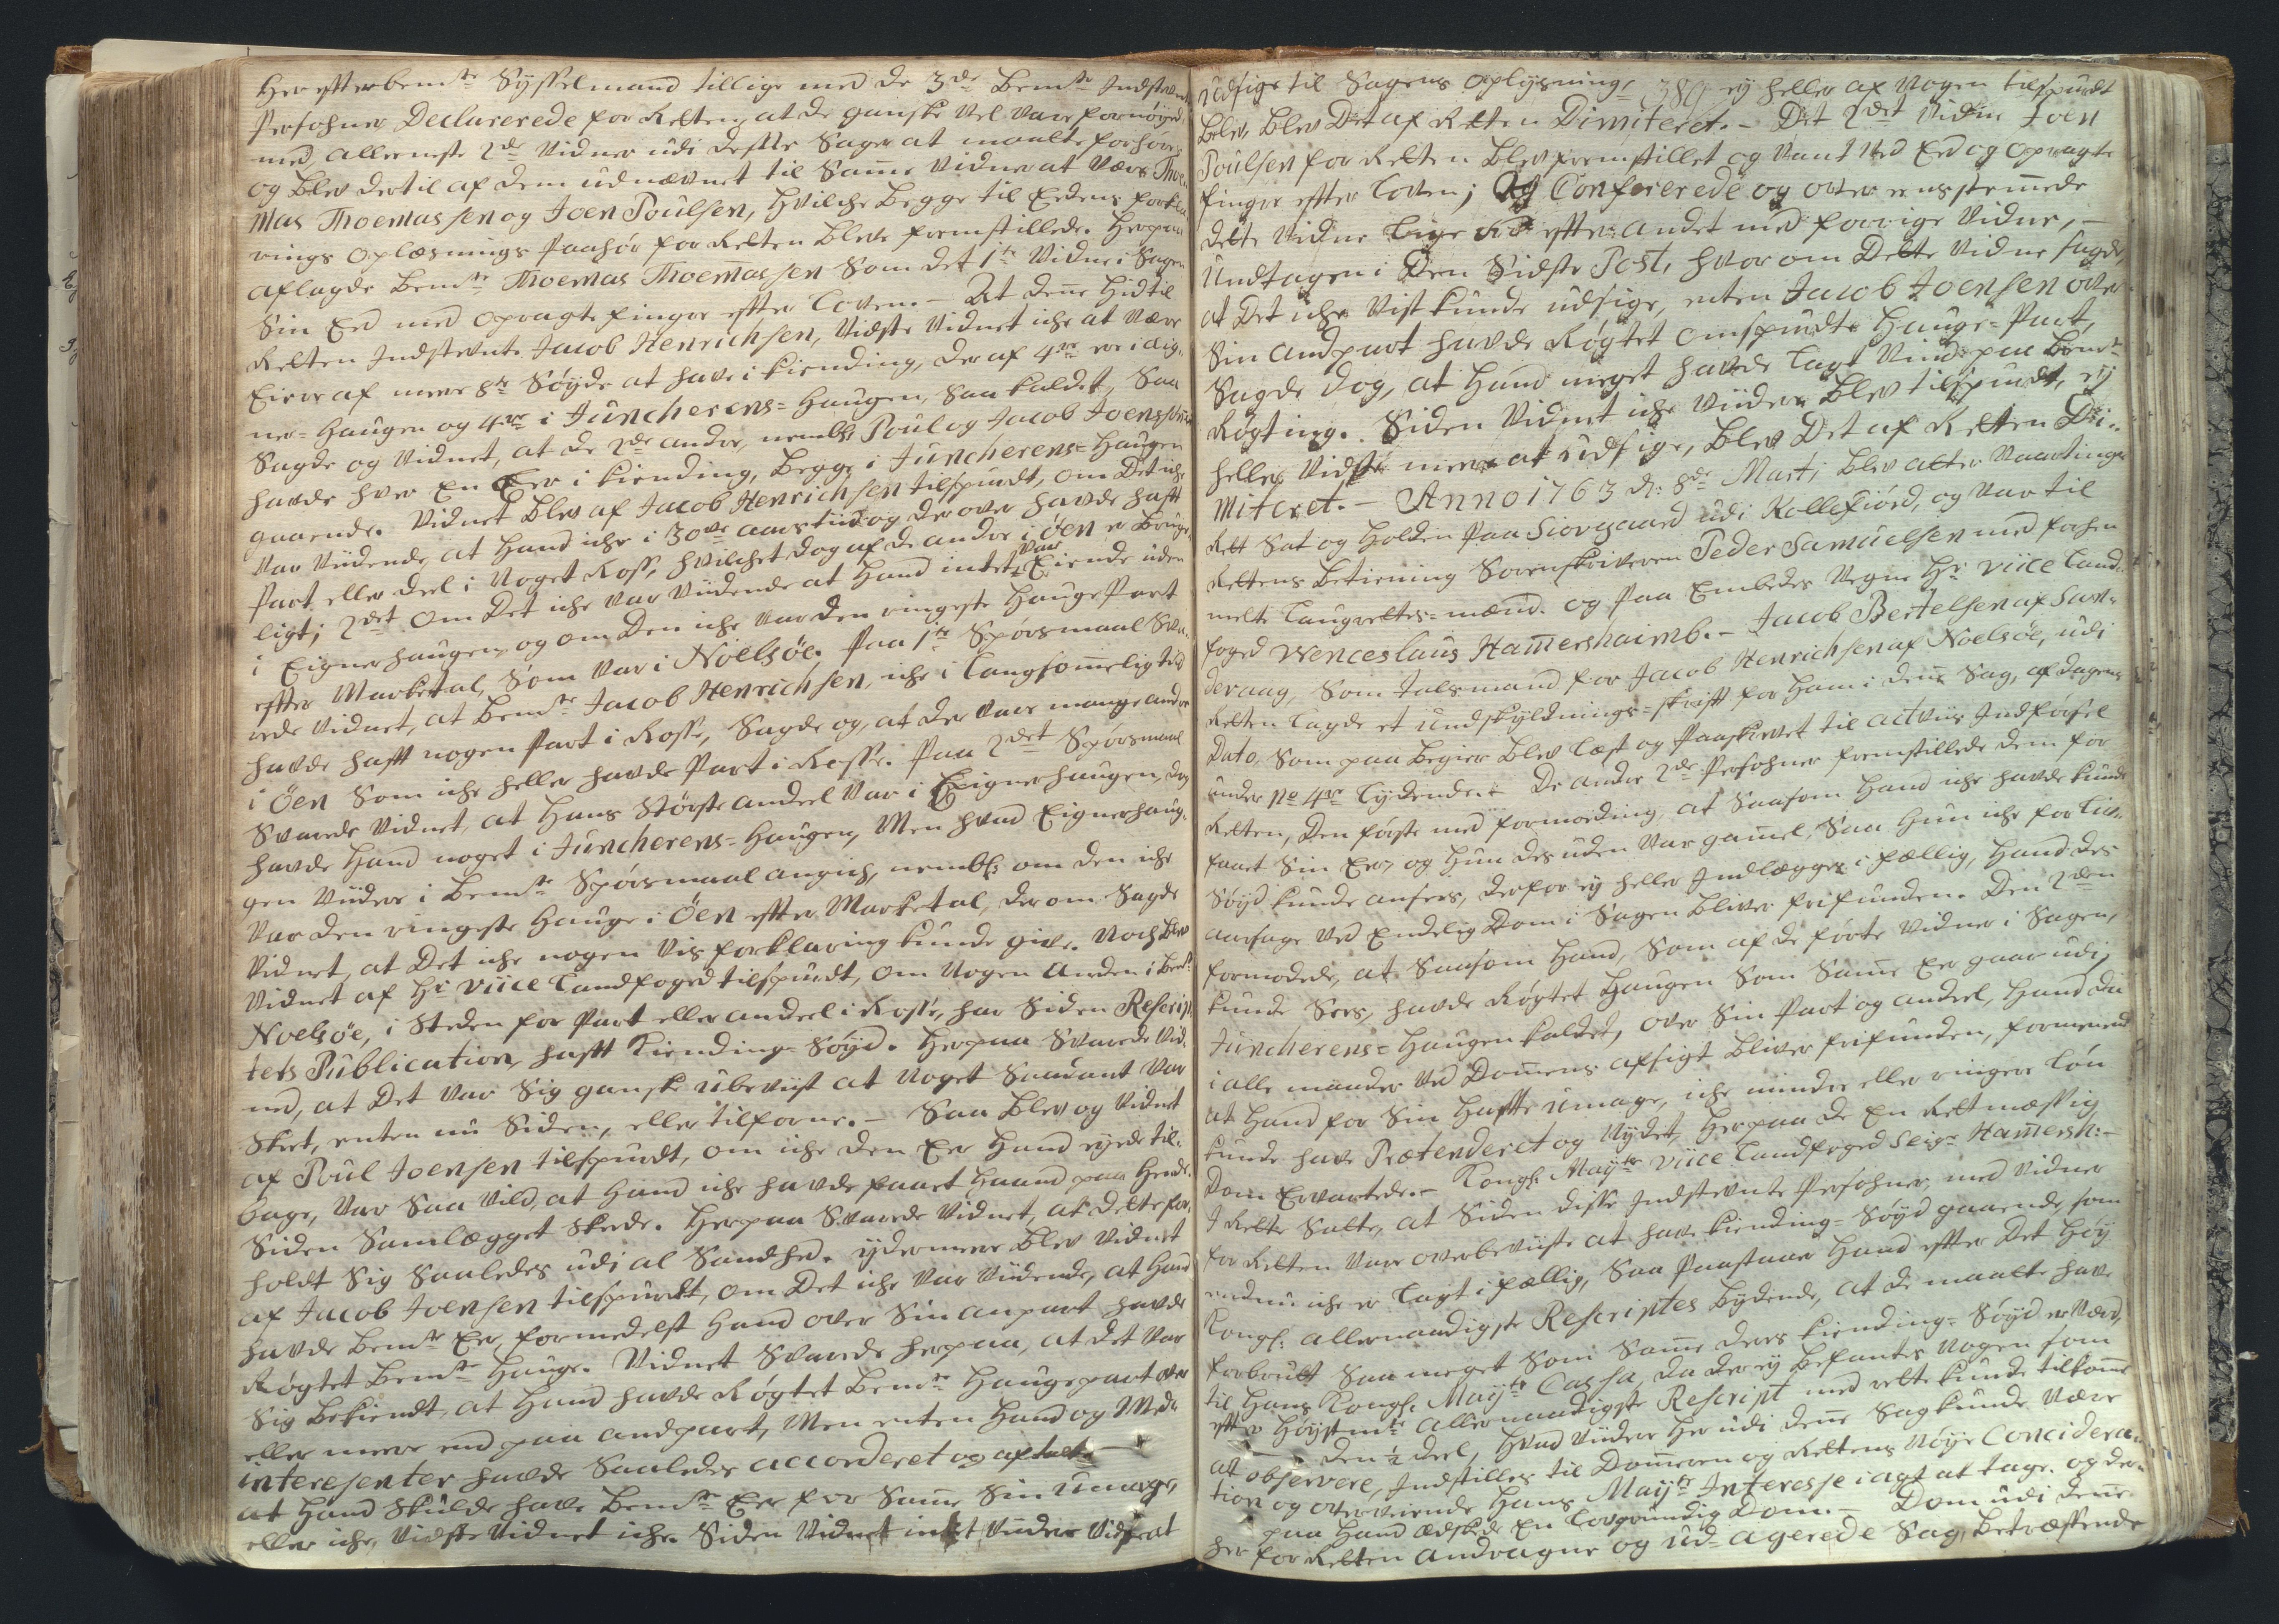 Her efter bemte Sysselmand tillige med de 3de bemte Indstevnte
Persohner Declarerede for Retten, at de ganske vel vare fornøyed
med, allermeste 2de Vidner udi dette Sager at maatte forhøres
og blev dertil af dem udnævnet til Samme Vidner at være Thoe-
mas Thoemassen og Joen Poulsen, hvilche begge til Eedens forkla-
rings Oplæsnings Paahør for Retten bleve fremstillede. Herpaa
aflagde bemte Thoemas Thoemassen som det 1te Vidne i Sagen
Sin Eed med opragte finger efter Loven. – At denne hidtil
Retten Indstevnte Jacob Henrichsen, vidste Vidnet iche at være
Eiere af mere 8te Søyde at have i kiending, der af 4re ere i Eig-
ner-Haugen og 4re i Juncherens-Haugen, saa kaldet, Saa
Sagde og Vidnet, at de 2de andre, nemblig Poul og Jacob Joenssønner
havde hver En Eer i kiending, begge i Juncherens-Haugen
gaaende. Vidnet blev af Jacob Henrichsen tilspurdt, om Det iche
var viidende, at Hand iche i 30ve aars tiid og derover havde hafft
Part eller deel i noget Ross, hvilchet dog af de andre i Øen er bruge-
ligt; 2det Om Det iche var viidende at Hand intet var Eiende uden
i Eignerhaugen, og om Den iche var den ringeste Hauge Part
efter Marketal, Som var i Noelsøe. Paa 1te Spørsmaal Sva-
rede Vidnet, at bemte Jacob Henrichsen, iche i Langsommelig tid
havde hafft nogen Part i Rosse, Sagde og, at der vare mange andre
i Øen som iche heller havde Part i Rosse. Paa 2det Spørsmaal
Svarede Vidnet, at Hans Største andeel var i Eignerhaugen, dog
havde Hand noget i Juncherens-Haugen, Men hvad Eignerhau-
gen viidere i bemte Spørsmaal angich, nembl: om den iche
var den ringeste Hauge i Øen efter Marketal, der om Sagde
Vidnet, at Det iche nogen vis forklaring kunde give. Noch blev
Vidnet af Hr Viice Landfoged tilspurdt, om Nogen Anden i bemte
Noelsøe, i Steden for Part eller andeel i Rosse, har Siden Rescrip-
tets Publication, hafft Kiending-Søyd. Herpaa Svarede Vid-
net, at Det var Sig ganske ubeviist at noget Saadant var
Skeet, enten nu Siden, eller tilforne. – Saa blev og Vidnet
af Poul Joensen tilspurdt, om iche den Eer Hand eyede til-
bage, var Saa vild, at Hand iche havde faaet Haand paa Hende
Siden Samlægget Skeede. Herpaa Svarede Vidnet, at dette for-
holdt Sig Saaledes udi al Sandhed. ydermeere blev Vidnet
af Jacob Joensen tilspurdt, om Det iche var viidende, at Hand
havde bemte Eer, formedelst Hand over Sin anpart havde
Røgtet bemte Hauge. Vidnet Svarede herpaa, at det var
Sig bekiendt, at Hand havde Røgtet bemte Haugepart over
eller meere end paa andpart, Men enten Hand og Med-
interesenter havde Saaledes accorderet og aftalt –
at Hand Skulde have bemte Eer for Samme Sin umage,
eller iche, vidste Vidnet iche. Siden Vidnet intet viidere vidste at
udsige til Sagens Oplysning, 389 ey heller af Nogen tilspurdt
blev, blev Det af Retten Dimiteret. – Det 2det Vidne Joen
Poulsen for Retten blev fremstillet og vant ved Eed og opragte
finger efter Loven; Og Confererede og overeensstemmede
dette Vidne Lige Ord efter andet med forrige Vidne, –
undtagen i Den Sidste Post, hvor om Dette Vidne Sagde,
at Det iche vist kunde udsige, enten Jacob Joensen over
Sin andpart havde Røgtet omspurdte Hauge-Part,
Sagde dog, at Hand meget havde Lagt Vind paa bemte
Røgting. Siden Vidnet iche viidere blev tilspurdt, ey
heller vidste meere at udsige, blev Det af Retten Di-
miteret. – Anno 1763 d: 8de Marti blev atter Vaartings
Rett Sat og Holden Paa Siovgaard udi Kollefiord, og var til
Rettens betiening Sorenskriveren Peder Samuelsen med forhen
meldte Laugrettes-mænd. og Paa Embedes Vegne Hr Viice Land-
foged Wenceslaus Hammershaimb. – Jacob Bertelsen af San-
deraag, Som Talsmand for Jacob Henrichsen af Noelsøe, udi
Retten Lagde et undskyldnings-skrifft for Ham i denne Sag, af dagens
Dato, Som paa begiær blev Læst og Paaskrevet til actviis Indførsel
under No 4re Lydende. – De andre 2de Persohner fremstillede dem for
Retten, Den første med formoding, at Saasom Hand iche havde kunde
faaet Sin Eer, og Hun desuden var gammel, Saa Hun iche for Liv-
Søyd kunde ansees, derfor ey heller Indlægges i fællig, Hand des
aarsage ved Endelig Dom i Sagen bliver frifunden. Den 2den
formodede, at Saasom Hand, Som af de førte Vidner i Sagen,
kunde Sees, havde Røgtet Haugen Som Samme Eer gaar udi,
Juncherens-Haugen kaldet, over Sin Part og andeel, Hand da
i alle maader ved Dommens afsigt bliver frifunden, formenend
at Hand for Sin haffte umage, iche mindre eller ringere Løn
kunde have Prætenderet og Nydet, Herpaa de En Retmæssig
Dom Ervartede. – Kongl: Mayts Viice Landfoged Seigr Hammersh: –
I Rette Satte, at Siden disse Indstevnte Persohner, med Vidner
for Retten vare overbeviiste at have kiending-Søyd gaaende, som
endnu iche er Lagt i fællig, Saa Paastaaer Hand efter Det Høy
Kongl: allernaadigste Rescriptes Lydende, at de maatte have
forbrudt Saa meget Som Samme deres kiending-Søyd er værd,
til Hans Kongl: Mayts Cassa, da der ey befantes Nogen som
efter Høystmte allernaadigste Rescript med rette kunde tilkomme
– Den ½ deel, Hvad viidere her udi denne Sag kunde være
at observere, Indstilles til Dommeren og Rettens Nøye Concidera-
tion og overveiende Hans Mayts Interesse i agt at tage. og der-
paa Hand ædskede En Lovgrundig Dom. – Dom udi denne
her for Retten andragne og ud-agerede Sag, betræffende